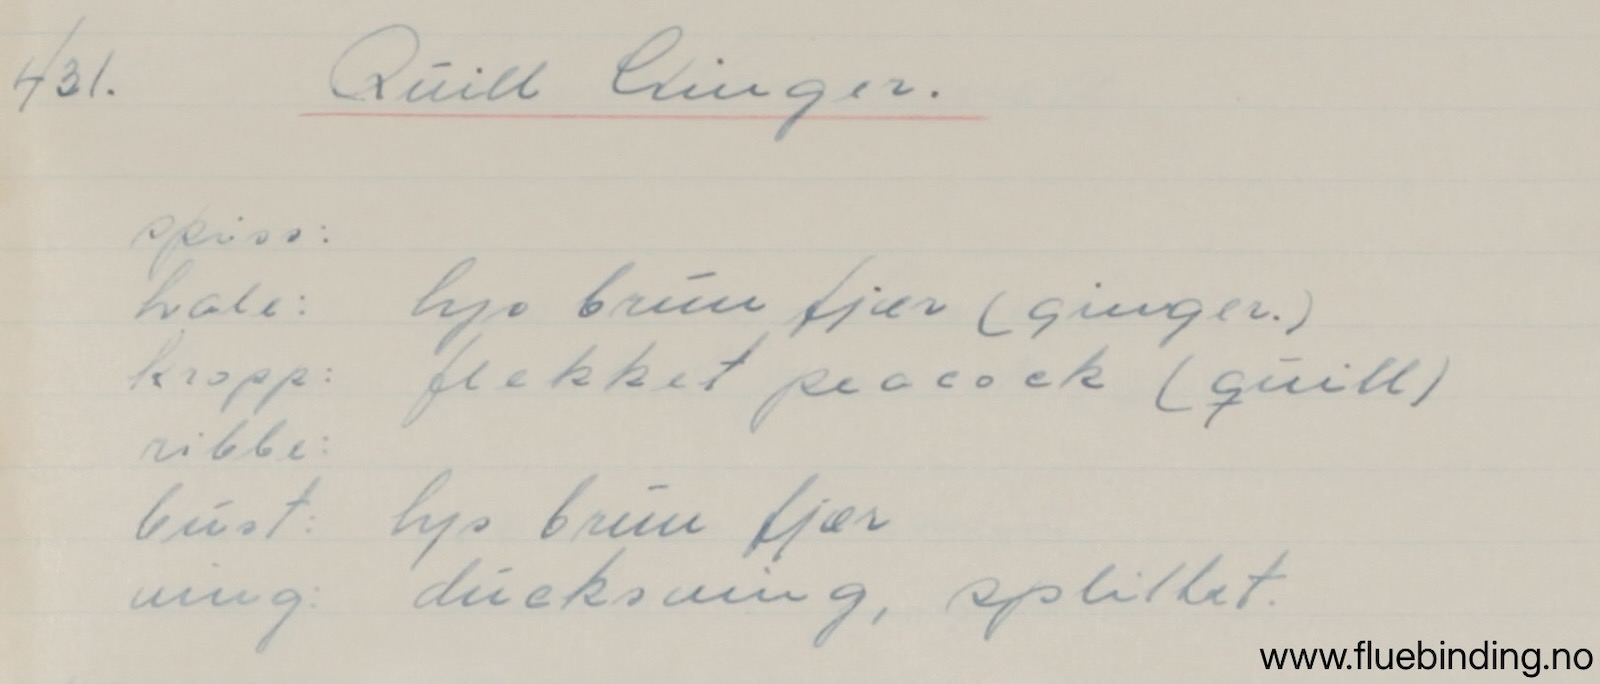 431. Quill Ginger.
spiss:
hale: lys brun fjær (ginger.)
kropp: flekket peacock (quill)
ribbe:
bust: lys brun fjær
ving: ducksving, splittet.
www.fluebinding.no